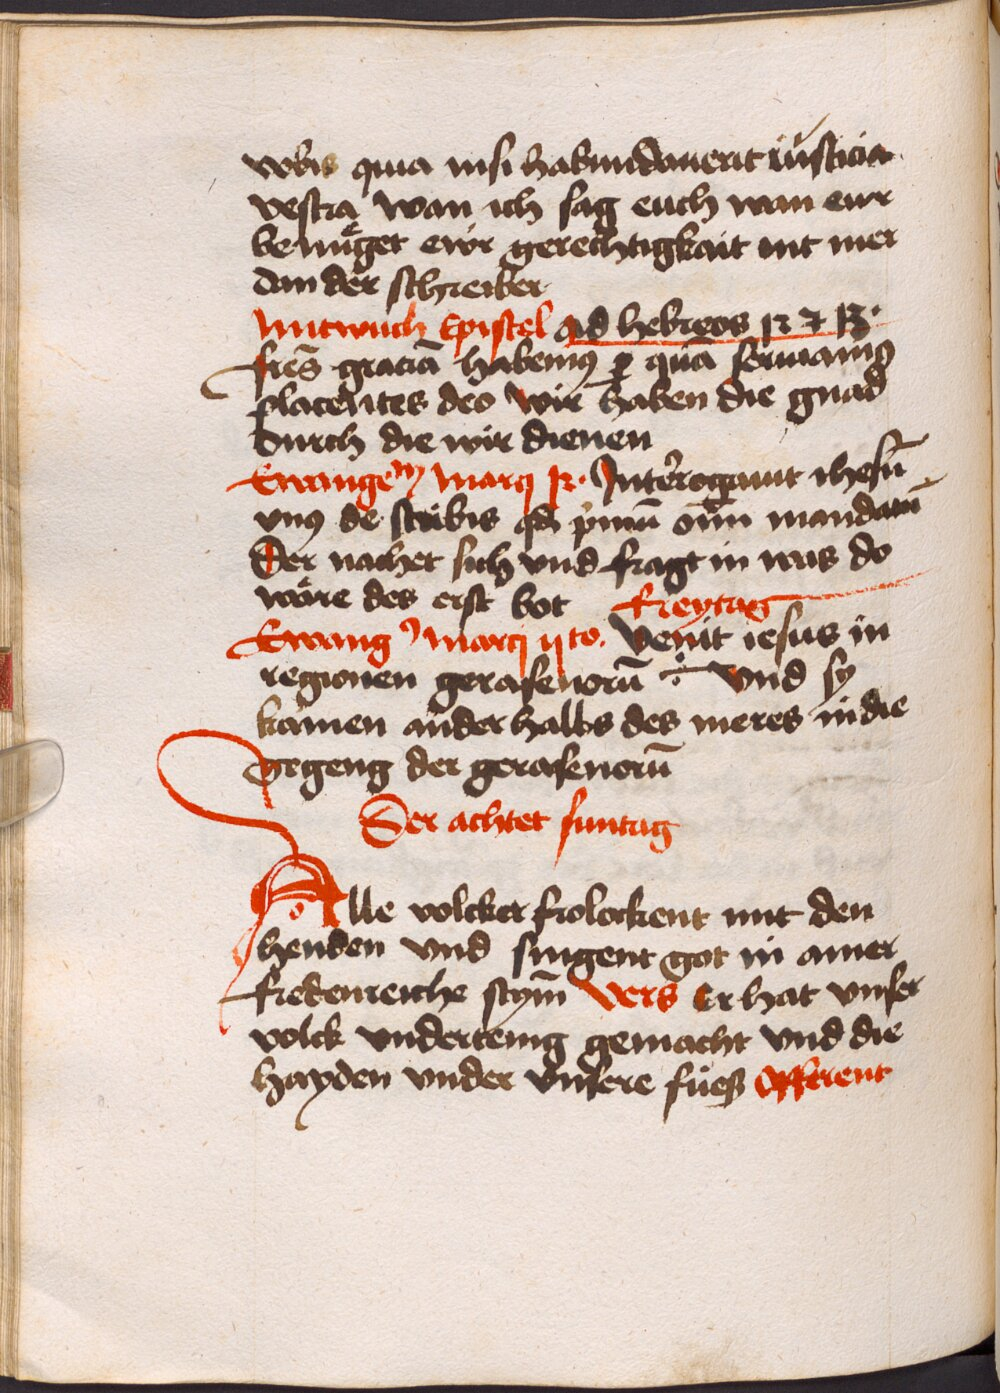 vobis quia nisi habundauerit iusticia
vestra wan ich sag euch wan eur
benuͤget ewr gerechtigkait nit mer
dan der schreiber
Mitwuch Epistel ad hebreos
fres̄ graciā habemꝰ ꝑ quā seruiamꝰ
placentes deo wir haben die gnad
durch die wir dienen
Ewangeꝫ marci Interrogauit ihesū
vnꝰ de scribis qd pimū oīm mandatū
Der nachet sich vnd fragt in was do
wäre des erst bot freytag
Ewang marci vto. Venit iesus in
regionen gerasenorū Vnd sy
kamen anderhalbs des meres in die
gegeng der gerasenorū
Der achtet suntag
Alle volcker frolockent mit den
henden vnd singent got in ainer
fredenreiche stym̄ vers Er hat vnser
volck vnderteing gemacht vnd die
hayden vnder vnsere füeß Offerent